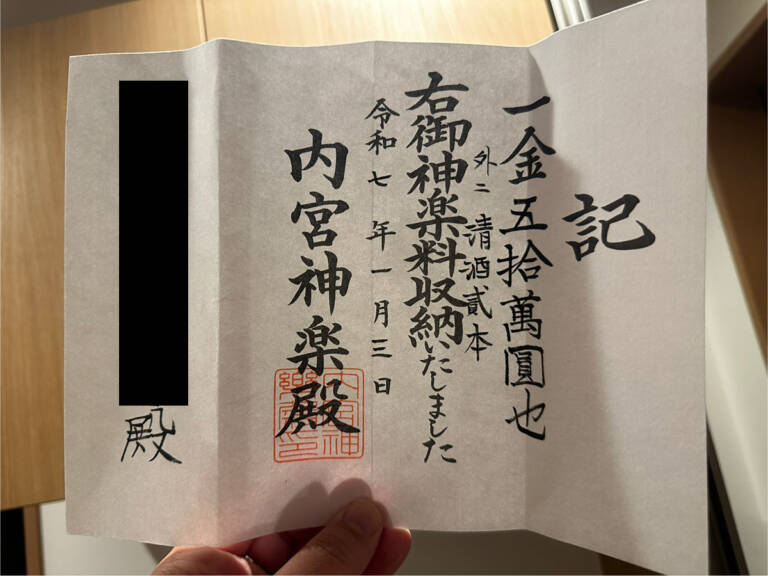 記
一金五拾萬圓也
外ニ 清酒貳本
右御神楽料収納いたしました
令和七年一月三日
内宮神楽殿
殿